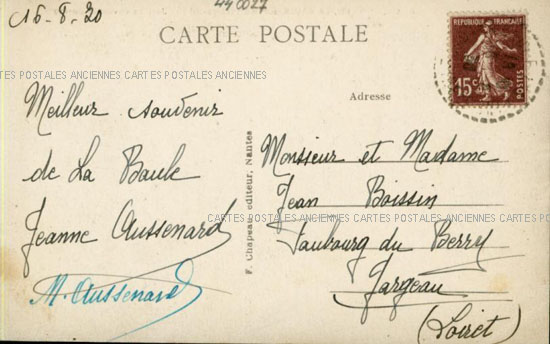 16-8-30
440027
CARTE POSTALE
REPUBLIQUE FRANÇAISE
15c
POSTES
CARTES POSTALES ANCIENNES CARTES POSTALES ANCIENNES CARTES
Adresse
Meilleur souvenir
de La Baule
Jeanne Aussenard
M. Aussenard
F. Chapeau, éditeur, Nantes
Monsieur et Madame
Jean Boissin
CARTES POSTALES ANCIENNES CARTES POSTALES ANCIENNES CARTES POSTALES
Faubourg du Berry
Jargeau
(Loiret)